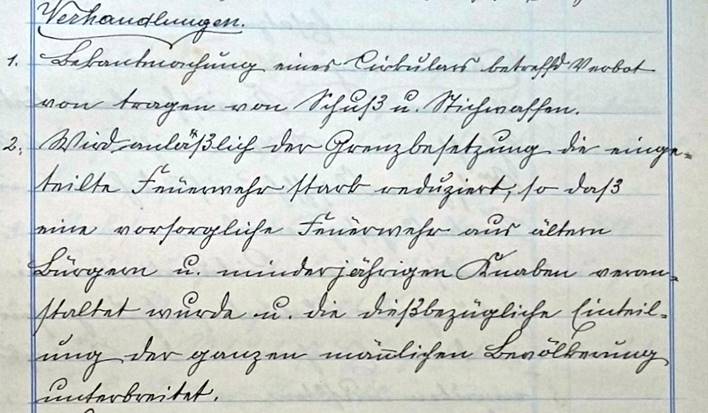 Verhandlungen.
1. Bekantmachung eines Cirkulars betreffd Verbot
von tragen von Schuß u. Stichwaffen.
2. Wird anläßlich der Grenzbesetzung die einge-
teilte Feuerwehr stark reduziert, so daß
eine vorsorgliche Feuerwehr aus ältern
Bürgern u. minderjährigen Knaben veran-
staltet wurde u. die dießbezügliche Einteil-
ung der ganzen mänlichen Bevölkerung
unterbreitet.